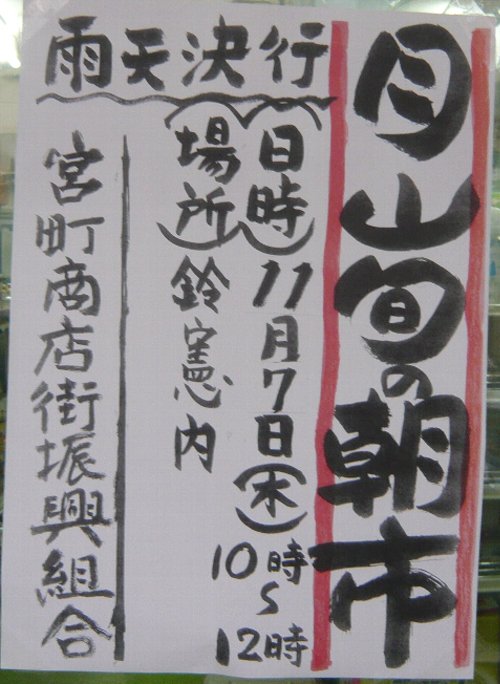 月山旬の朝市
雨天決行
(日時) 11月7日(木)
10時~12時
(場所) 鈴憲内
宮町商店街振興組合